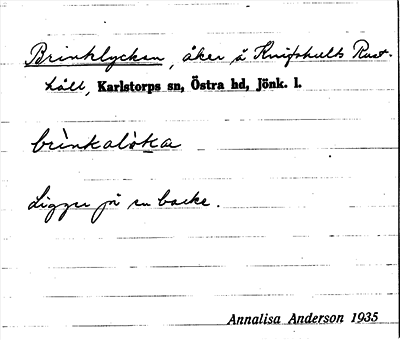 Brinklyckan, åker å Knifshults Rust-
håll, Karlstorps sn, Östra hd, Jönk. l.
brìnkalo̊ka
Ligger på en backe.
Annalisa Anderson 1935